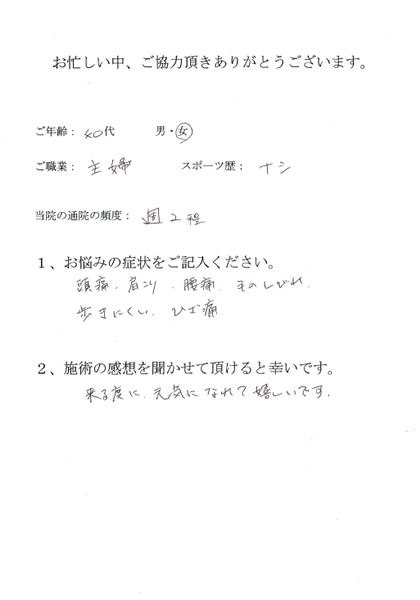 お忙しい中、ご協力頂きありがとうございます。
ご年齢： 40代 男・女
ご職業： 主婦 スポーツ歴： ナシ
当院の通院の頻度： 週2程
1、お悩みの症状をご記入ください。
頭痛、肩コリ、腰痛、手のしびれ、
歩きにくい、ひざ痛
2、施術の感想を聞かせて頂けると幸いです。
来る度に、元気になれて嬉しいです。